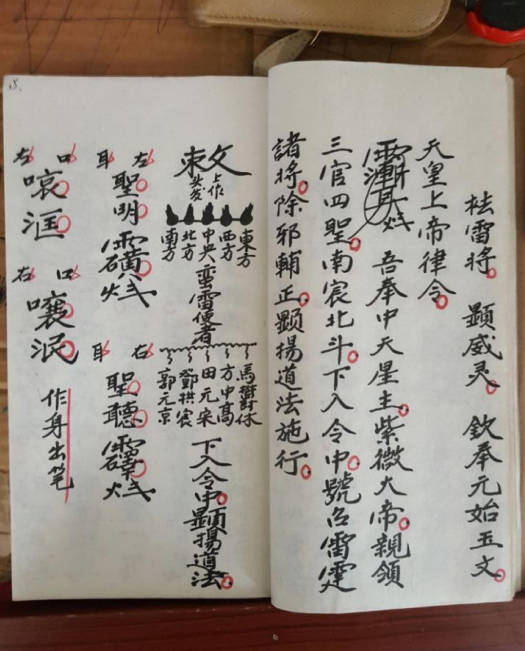 祛雷将。顕威灵。欽奉元始玉文。
天皇上帝律令。
吾奉中天星主。紫微大帝親領
三官四聖。南宸北斗。下入令中。號召雷霆
諸将。除邪輔正。顕揚道法施行。
敕
上作
頭髪
東方
西方
中央
北方
南方
蛮雷使者
馬鬱林
方中高
田元宗
鄧拱宸
郭元京
下入令中。顕揚道法。
左耳 聖明
右耳 聖聴
左口
右口
作身出笔
18.